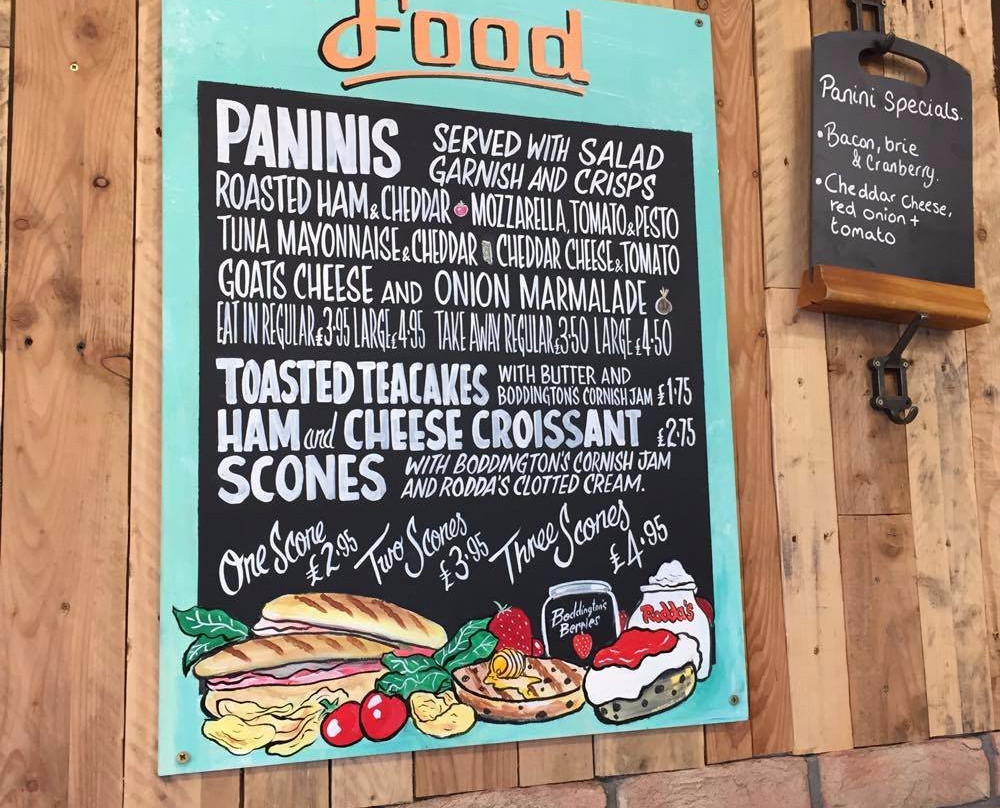 Food
PANINIS SERVED WITH SALAD
GARNISH AND CRISPS
ROASTED HAM & CHEDDAR MOZZARELLA, TOMATO & PESTO
TUNA MAYONNAISE & CHEDDAR CHEDDAR CHEESE & TOMATO
GOATS CHEESE AND ONION MARMALADE
EAT IN REGULAR £3.95 LARGE £4.95 TAKE AWAY REGULAR £3.50 LARGE £4.50
TOASTED TEACAKES WITH BUTTER AND
BODDINGTON'S CORNISH JAM £1.75
HAM and CHEESE CROISSANT £2.75
SCONES WITH BODDINGTON'S CORNISH JAM
AND RODDA'S CLOTTED CREAM.
One Scone £2.95 Two Scones £3.95 Three Scones £4.95
Boddington's
Berries
Rodda's
Panini Specials.
• Bacon, brie
& Cranberry.
• Cheddar Cheese,
red onion +
tomato